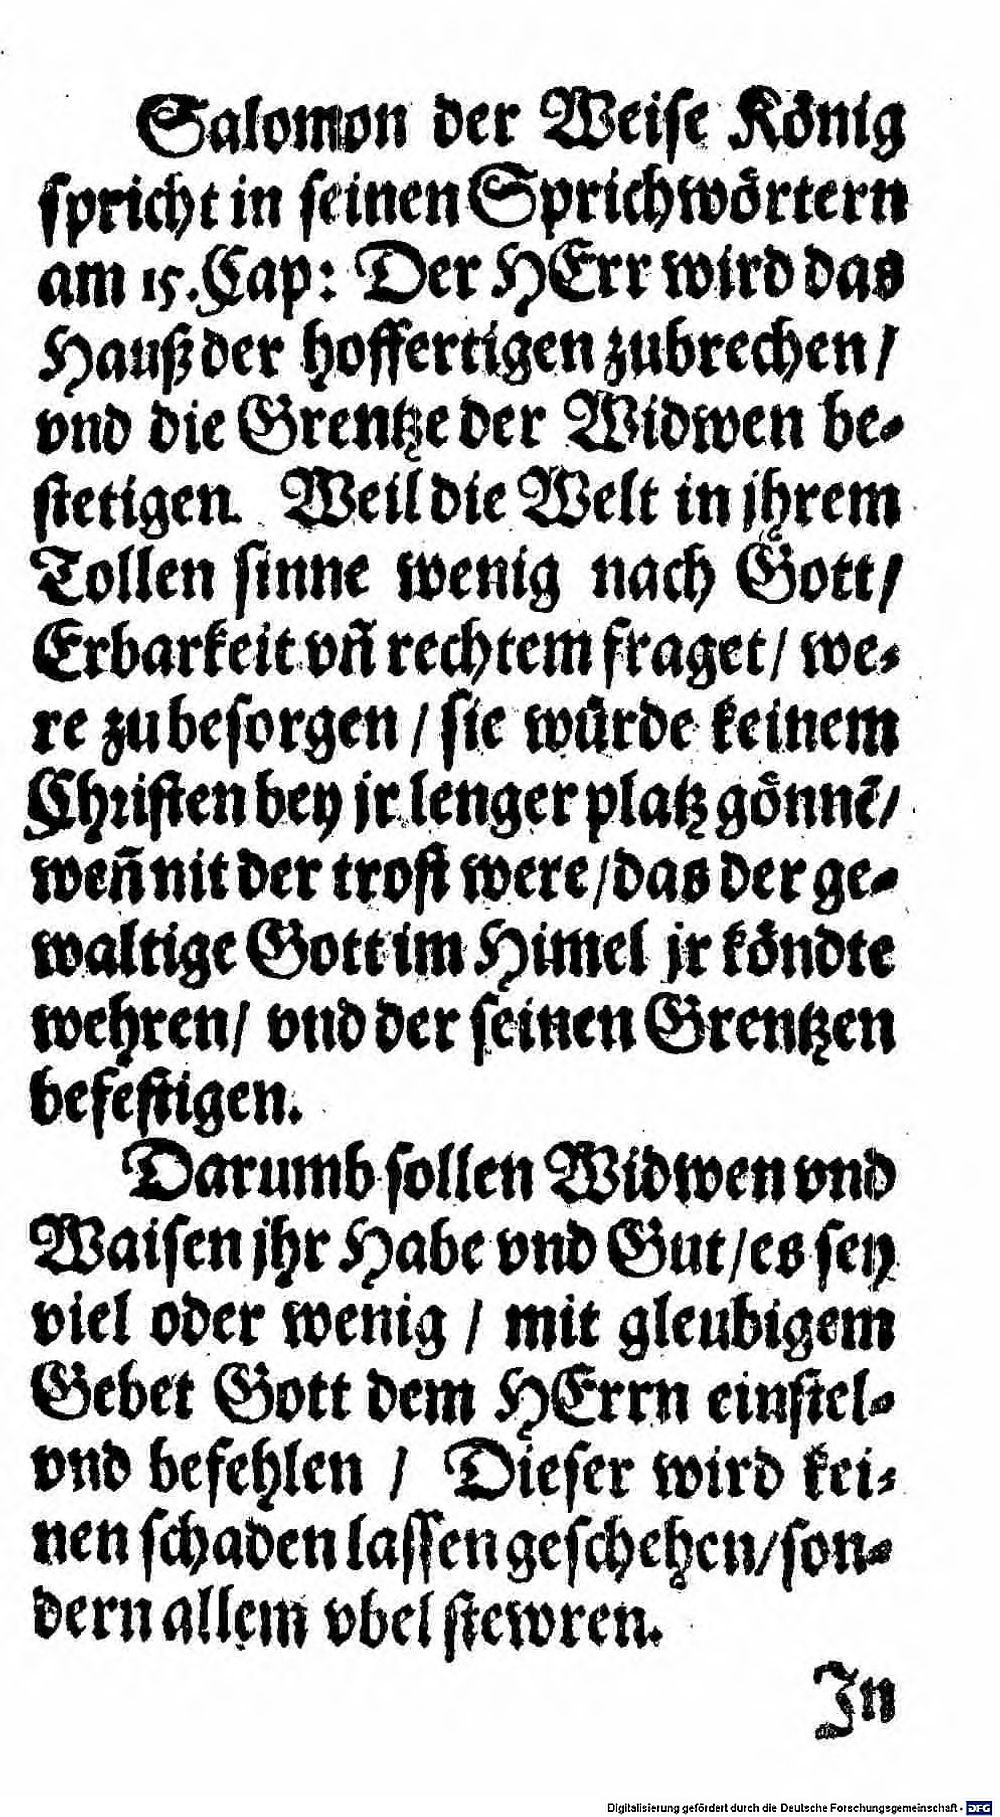 Salomon der Weise König
spricht in seinen Sprichwörtern
am 15. Cap: Der HErr wird das
Hauß der hoffertigen zubrechen/
vnd die Grentze der Widwen be-
stetigen. Weil die Welt in jhrem
Tollen sinne wenig nach Gott/
Erbarkeit vñ rechtem fraget/ we-
re zu besorgen / sie würde keinem
Christen bey jr lenger platz gönnē/
weñ nit der trost were/ das der ge-
waltige Gott im Himel jr köndte
wehren/ vnd der seinen Grentzen
befestigen.
Darumb sollen Widwen vnd
Waisen jhr Habe vnd Gut/ es sey
viel oder wenig / mit gleubigem
Gebet Gott dem HErrn einstel-
vnd befehlen / Dieser wird kei-
nen schaden lassen geschehen/ son-
dern allem vbel stewren.
In
Digitalisierung gefördert durch die Deutsche Forschungsgemeinschaft - DFG